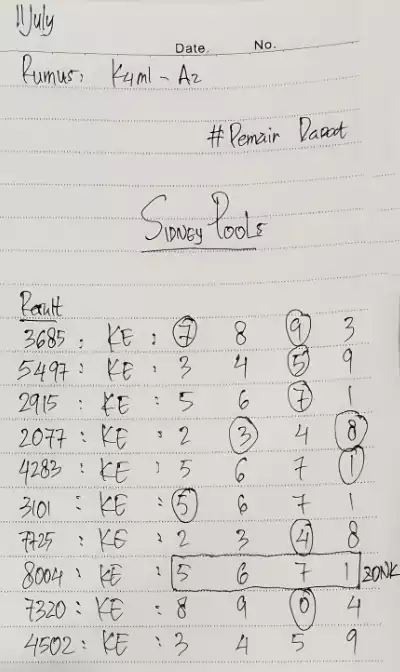 11 July
Date. No.
Rumus: K4ml - A2
# Pemain Dapat
SIDNEY POOLS
Result
3685 : KE : 7 8 9 3
5497 : KE : 3 4 5 9
2915 : KE : 5 6 7 1
2077 : KE : 2 3 4 8
4283 : KE : 5 6 7 1
3101 : KE : 5 6 7 1
7725 : KE : 2 3 4 8
8004 : KE : 5 6 7 1 ZONK
7320 : KE : 8 9 0 4
4502 : KE : 3 4 5 9